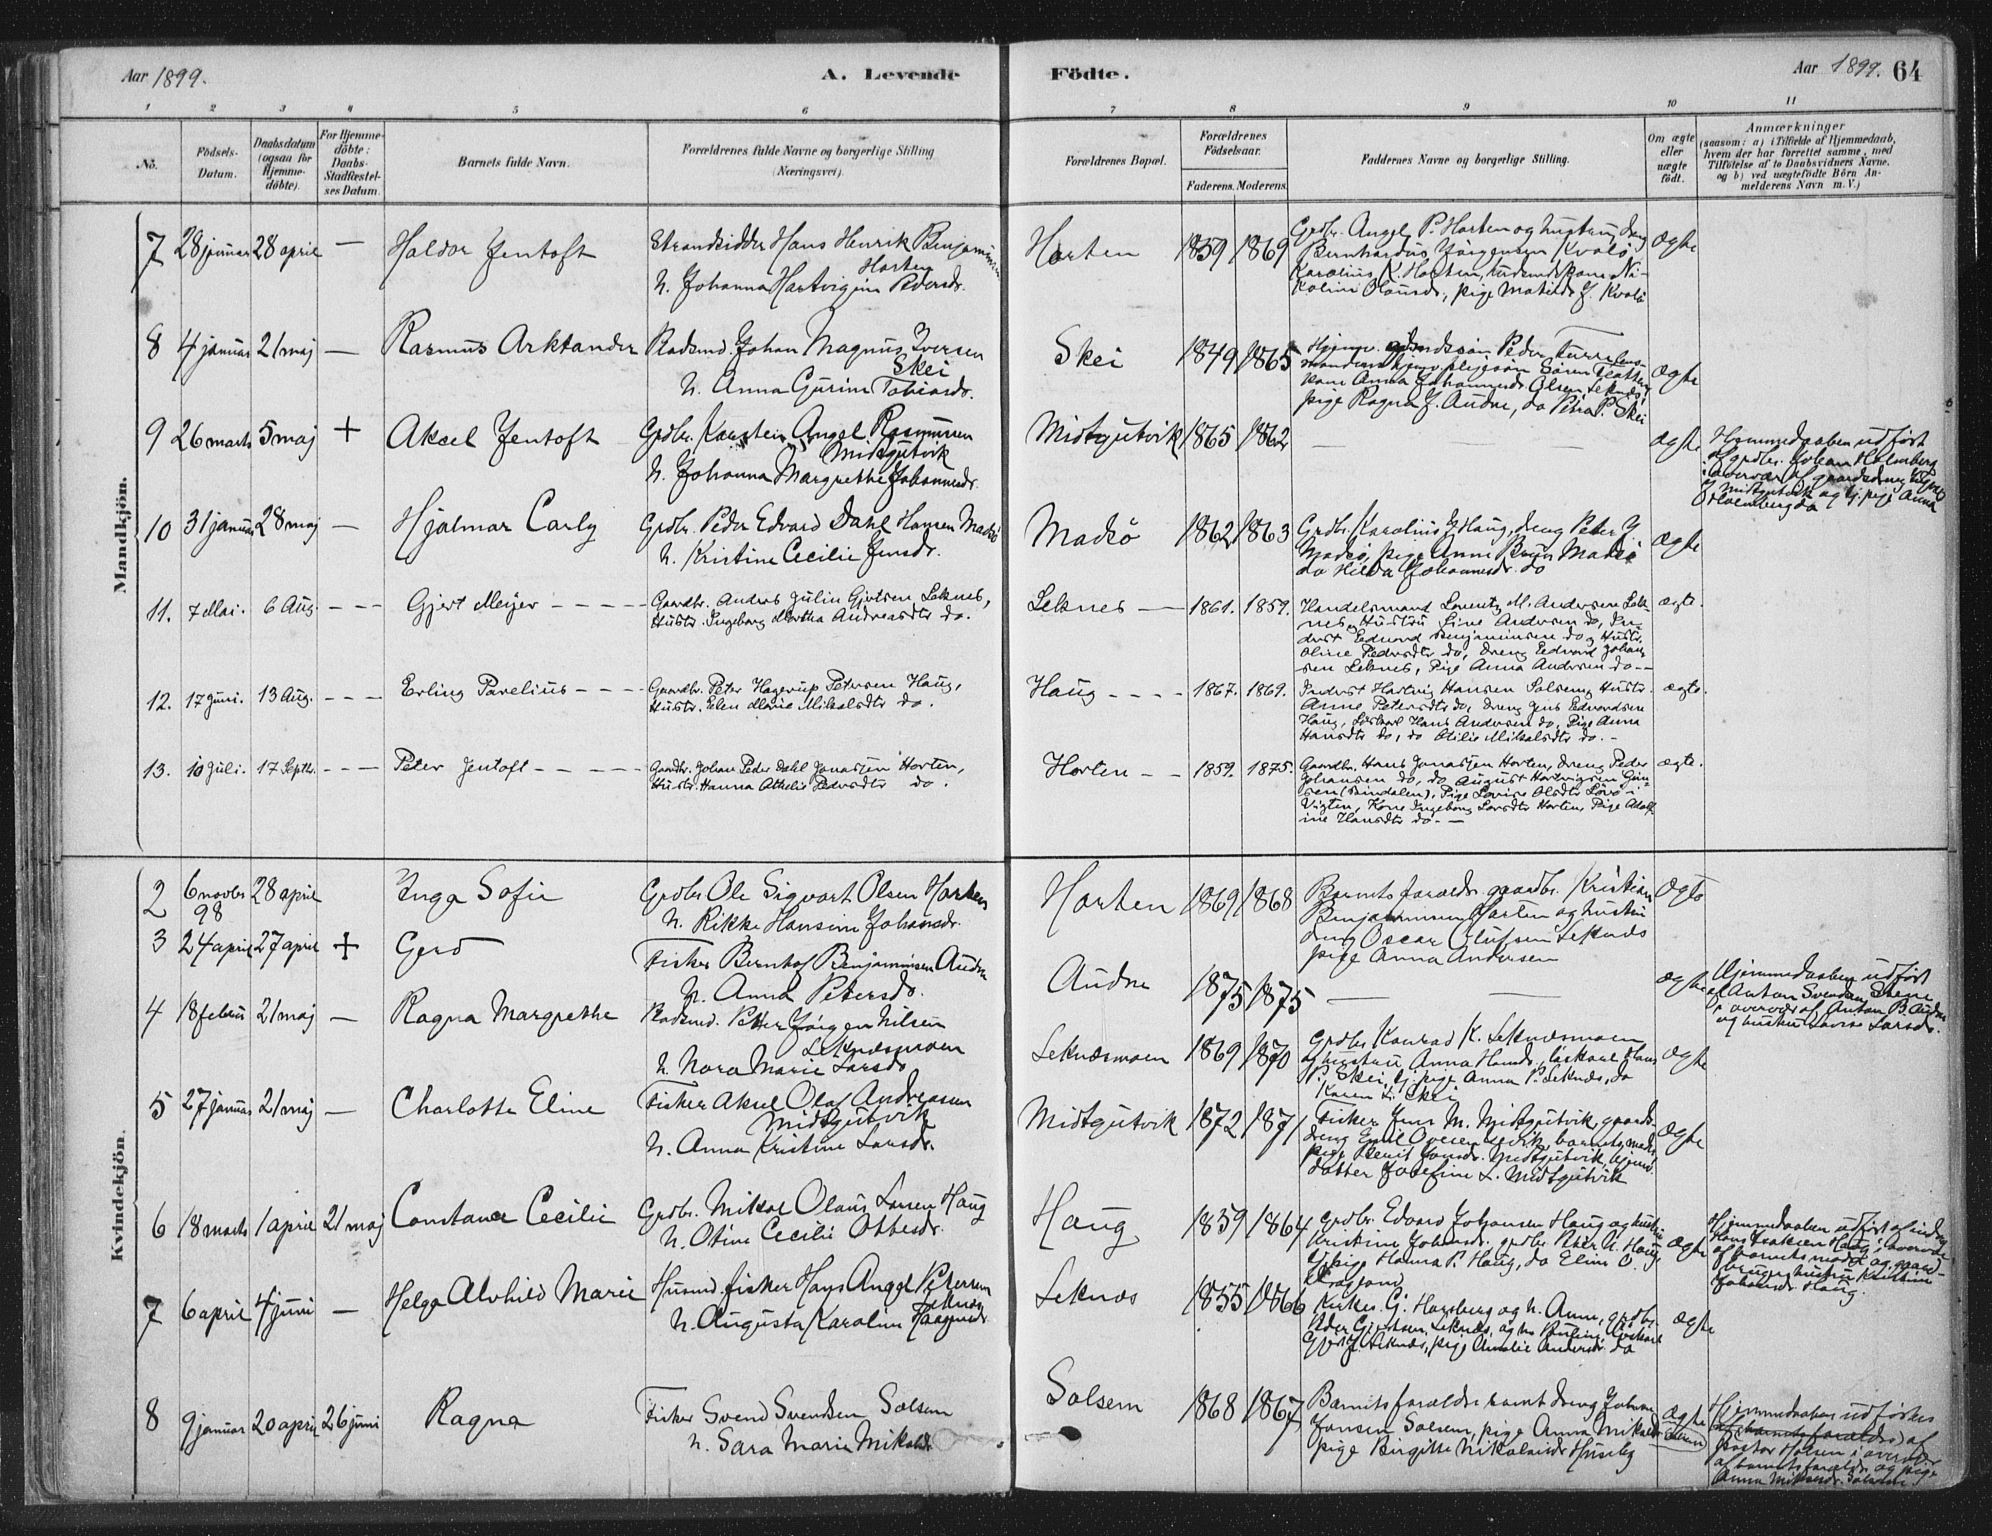 Aar 1899.
A. Levende
Födte.
Aar 1899. 64
1 2 3 4 5 6 7 8 9 10 11
No.
Födsels-Datum.
Daabsdatum (ogsaa for Hjemme-döbte).
For Hjemme-döbte: Daabs-Stadfæstel-ses Datum.
Barnets fulde Navn.
Forældrenes fulde Navne og borgerlige Stilling (Næringsvei).
Forældrenes Bopæl.
Forældrenes Födselsaar.
Faderens. Moderens.
Faddernes Navne og borgerlige Stilling.
Om ægte eller uægte födt.
Anmærkninger
(saasom: a) i Tilfælde af Hjemmedaab, hvem der har forrettet samme, med Tilföielse af to Daabsvidners Navne. og b) ved uægtefödte Börn An-melderens Navn m. V.)
Mandkjön.
7 28 januar 28 april — Haldor Jentoft
Strandsidder Hans Henrik Benjaminsen
Horten
h. Johanna Hartvigine Pedersdr.
Horten 1859 1869
Grdbr. Angel P. Horten og hustru, dreng
Bernhardus Jörgensen Kvalö,
Karolius K. Horten, kone Ni-
koline Olausdr, pige Matilde J. Kvalö
Ægte
8 4 januar 21 maj — Rasmus Arktander
Baadsmd. Johan Magnus Iversen
Skei
h. Anna Gurine Tobiasdr.
Skei 1849 1865
kone Anna Johannesdr Olsen Leknes,
pige Ragna J. Audne, do Petra P. Skei
Ægte
9 26 marts 5 maj + Aksel Jentoft
Grdbr. Karsten Angel Rasmussen
Midtgutvik
h. Johanna Margrethe Johannesdr.
Midtgutvik 1865 1862 — —
ægte
Hjemmedaaben udført
af grdbr. Johan Holmberg
10 31 januar 28 maj — Hjalmar Carly
Grdbr. Peder Edvard Dahl Hansen Madsö
h. Kristine Cecilie Jensdr.
Madsö 1862 1863
Grdbr. Karolius J Haug, dreng Peter J.
Madsö, pige Anne Bruun Madsö
do Hilda Johannesdr. do
ægte
11. 7 Mai. 6 Aug. - - - Gjert Meyer - - - -
Gaardbr. Anders Julin Gjertsen Leknes,
Hustr. Ingeborg Martha Andreasdtr do.
Leknes — 1861. 1859.
Handelsmand Lorentz M. Andersen Lek-
nes, Hustru Line Andersen do, In-
derst Edvard Benjaminsen do og Hustr.
Oline Pedersdtr do, Dreng Edvard Johan-
sen Leknes, Pige Anna Andersen do - -
ægte.
12. 17 Juni. 13 Aug. - - - Erling Pavelius - - - -
Gaardbr. Peter Hagerup Petersen Haug,
Hustr. Elen Marie Mikalsdtr do.
Haug - - - - 1867. 1869.
Inderst Hartvig Hansen Solsem, Hustr.
Anne Petersdtr do, Dreng Jens Edvardsen
Haug, Löskarl Hans Andersen do, Pige Anna
Hansdtr do, do Otilie Mikalsdtr do. -
ægte.
13. 10 Juli. 17 Septbr. - - - Peter Jentoft - - - -
Gaardbr. Johan Peder Dahl Jonassen Horten,
Hustr. Hanna Athelie Pedersdtr do.
Horten - - 1859. 1875.
Gaardbr. Hans Jonassen Horten, Dreng Peder
Johansen do, do August Hartvigsen Jen-
sen (Bindalen), Pige Lovise Olsdtr Lövö i
Vigten, Kone Ingeborg Larsdtr Horten, Pige Adolf-
ine Hansdtr do. —
ægte.
Kvindekjön.
2 6 novbr 98 28 april Inga Sofie
Grdbr. Ole Sigvart Olsen Horten
h. Rikke Hansine Johansdr.
Horten 1869 1868
Barnets forældr. gaardbr. Kristian
Benjaminsen Horten og hustru
dreng Oscar Olufsen Leknæs
pige Anna Andersen
Ægte
3 24 april 27 april + Gerd
Fisker Bernhof Benjaminsen Audne
h. Anna Petersdr.
Audne 1875 1875 — —
ægte
Hjemmedaaben udført
af Anton Svendsen Stene
i overvær af Anton B. Audne
og hustru Lovise Larsdr.
4 18 februar 21 maj — Ragna Margrethe
Baadsmd. Petter Jörgen Nilsen
Leknæsmoen
h. Nora Marie Larsdr.
Leknæsmoen 1869 1870
Grdbr. Konrad K. Leknæsmoen
og hustru Anna Hansdr, löskarl Hans
P. Skei, tj. pige Anna P. Leknæs, do
Karen L. Skei
Ægte
5 27 januar 21 maj — Charlotte Eline
Fisker Aksel Olaf Andreassen
Midtgutvik
h. Anna Kristine Larsdr.
Midtgutvik 1872 1871
Fisker Jens M. Midtgutvik, gaards-
datter Josefine L. Midtgutvik
Ægte
6 18 marts 1 april 21 maj Constance Cecilie
Grdbr. Mikal Olaus Larsen Haug
h. Otine Cecilie Ottesdr.
Haug 1859 1864
Grdbr. Edvard Johansen Haug og hustru
Kristine Johansdr. grdbr. Peter N. Haug,
pige Hanna P. Haug, do Eline O.
Ægte
Hjemmedaaben udført af
Hans Isaksen Haug i overvær
af barnets moder og gaard-
bruger hustru Kristine
Johansdr. Haug.
7 6 april 4 juni — Helga Alvhild Marie
Husmd. fisker Hans Angel Petersen
Leknæs
h. Augusta Karoline Haagensdr.
Leknæs 1855 1866
Kirkes. G. Horsberg og h. Anne, grdbr.
Peder Gjertsen Leknæs, og h. Pauline, löskarl
Gjert J. Leknæs, pige Amalie Andersdr. do
Ægte
8 9 januar 20 april 26 juni Ragna
Fisker Svend Svendsen Solsem
h. Sara Marie Mikalsdr.
Solsem 1868 1867
Barnets forældre samt dreng Johan
Jansen Solsem, pige Anna Mikalsdr. Solsem
pige Birgitte Nikolaisdr Huseby
ægte
Hjemmedaaben udførtes
af (barnets forældre) af
pastor Holsen i overvær
af barnets forældre og pige
Anna Mikalsdr. Solsem